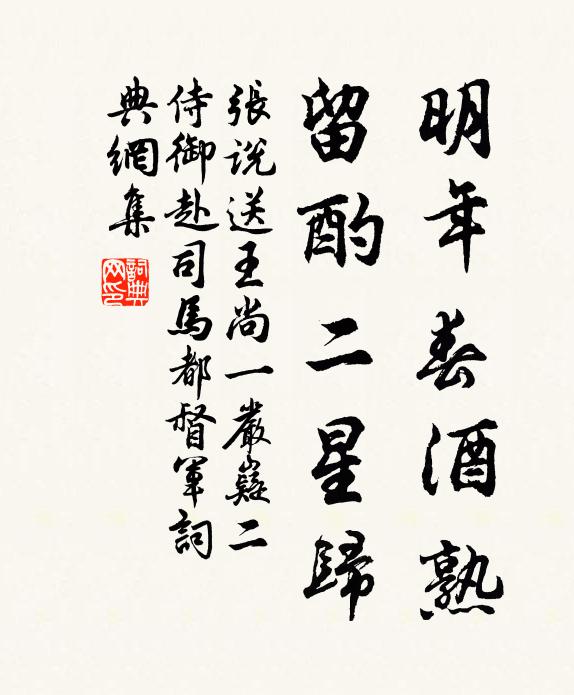 明年春酒熟
留酌二星歸
張説送王尚一嚴嶷二
侍御赴司馬都督軍詞
典網集
詞典网印